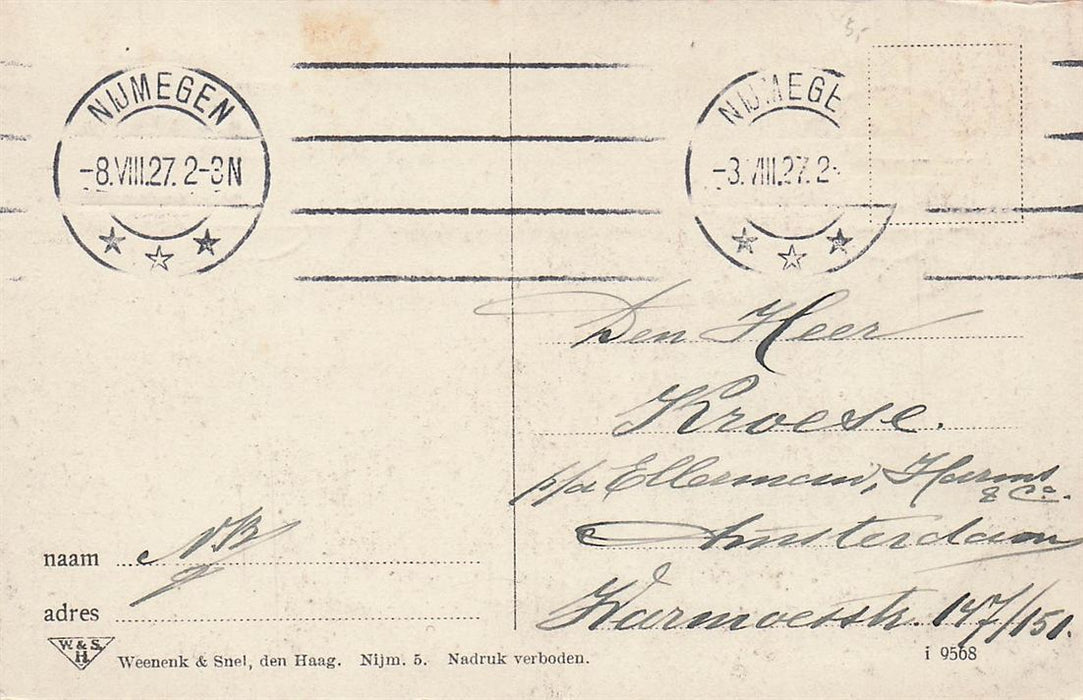 5,-
NIJMEGEN
-8.VIII.27. 2-3N
NIJMEGE
-8.VIII.27. 2-
Den Heer
Kroese.
p/a Ellerman, Harms
& Co.
Amsterdam
Warmoesstr. 147/151.
naam
adres
W. & S.
H
Weenenk & Snel, den Haag. Nijm. 5. Nadruk verboden.
i 9568